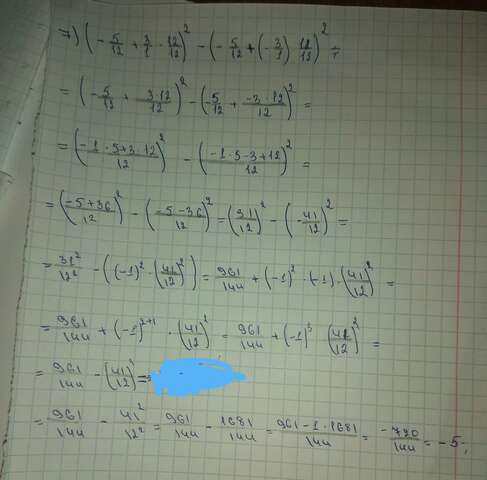 7) (- 5/12 + 3/1 · 12/12)² - (- 5/12 + (- 3/1) · 12/12)² =
= (- 5/12 + 3·12/12)² - (- 5/12 + -3·12/12)² =
= (-1·5+3·12/12)² - (-1·5-3+12/12)² =
= (-5+36/12)² - (-5-36/12)² = (31/12)² - (- 41/12)² =
= 31²/12² - ((-1)² · (41/12)²) = 961/144 + (-1)² · (-1) · (41/12)² =
= 961/144 + (-1)²⁺¹ · (41/12)² = 961/144 + (-1)³ (41/12)² =
= 961/144 - (41/12)² =
= 961/144 - 41²/12² = 961/144 - 1681/144 = 961-1·1681/144 = -720/144 = -5;